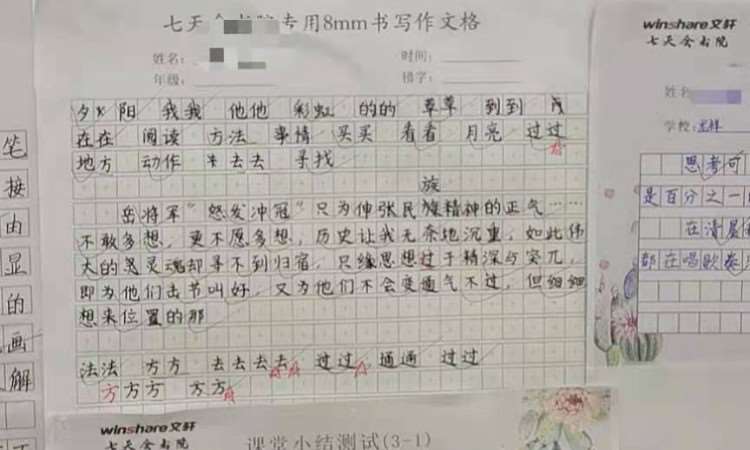 七天 专用8mm书写作文格
姓名：
时间：
年级：
错字：
夕 阳 我我 他他 彩虹 的的 草草 到到
在在 阅读 方法 事情 买买 看看 月亮 过过
地方 动作 去去 寻找
旋
岳将军"怒发冲冠"只为伸张民族精神的正气……
不敢多想，更不愿多想，历史让我无奈地沉重，如此伟
大的 灵魂却寻不到归宿，只缘思想过于精深与突兀，
即为他们击节叫好，又为他们不会变通气不过，但细细
想来位置的那
法法 方方 去去去去 过过 通通 过过
方方方 方方
winshare文轩
七天会书院
课堂小结测试(3-1)
winshare文轩
七天会书院
姓名
学校：
思考可
是百分之一的
在清晨
都在唱歌
笔
接
由
显
的
画
解